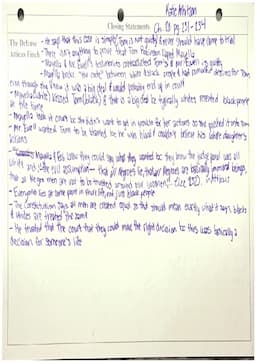 Kate Atkison
Closing Statements Ch. 20 pg 231-234
The Defense - He says that this case is simple, Tom is not guilty & never should have come to trial
Atticus Finch - There isn't anything to prove that Tom Robinson raped Mayella
- Mayella & Mr. Ewell's testimonies contradicted Tom's & Mr. Ewell is guilty
- Mayella broke "the code" between white & black people & had romantic desires for Tom,
even though she knew it was a big deal & would probably end up in court
- Mayella (white) kissed Tom (black) & that is a big deal bc typically whites resented black people
at this time
- Mayella took it court bc she didn't want to be in trouble for her actions so she pushed it onto Tom
- Mr. Ewell wanted Tom to be blamed bc he was black & couldn't believe his white daughter's
actions
- Mayella & Bob knew they could say what they wanted bc they knew the jury panel was all
white and "the evil assumption- that all Negroes lie, that all Negroes are basically immoral beings,
that all Negro men are not to be trusted around our women," (Lee 232) - Atticus
- Everyone lies at some point in their life, not just black people
- The Constitution says all men are created equal so that should mean exactly what it says, blacks
& whites are treated the same
- He trusted that the court that they could make the right decision bc this was basically a
decision for someone's life